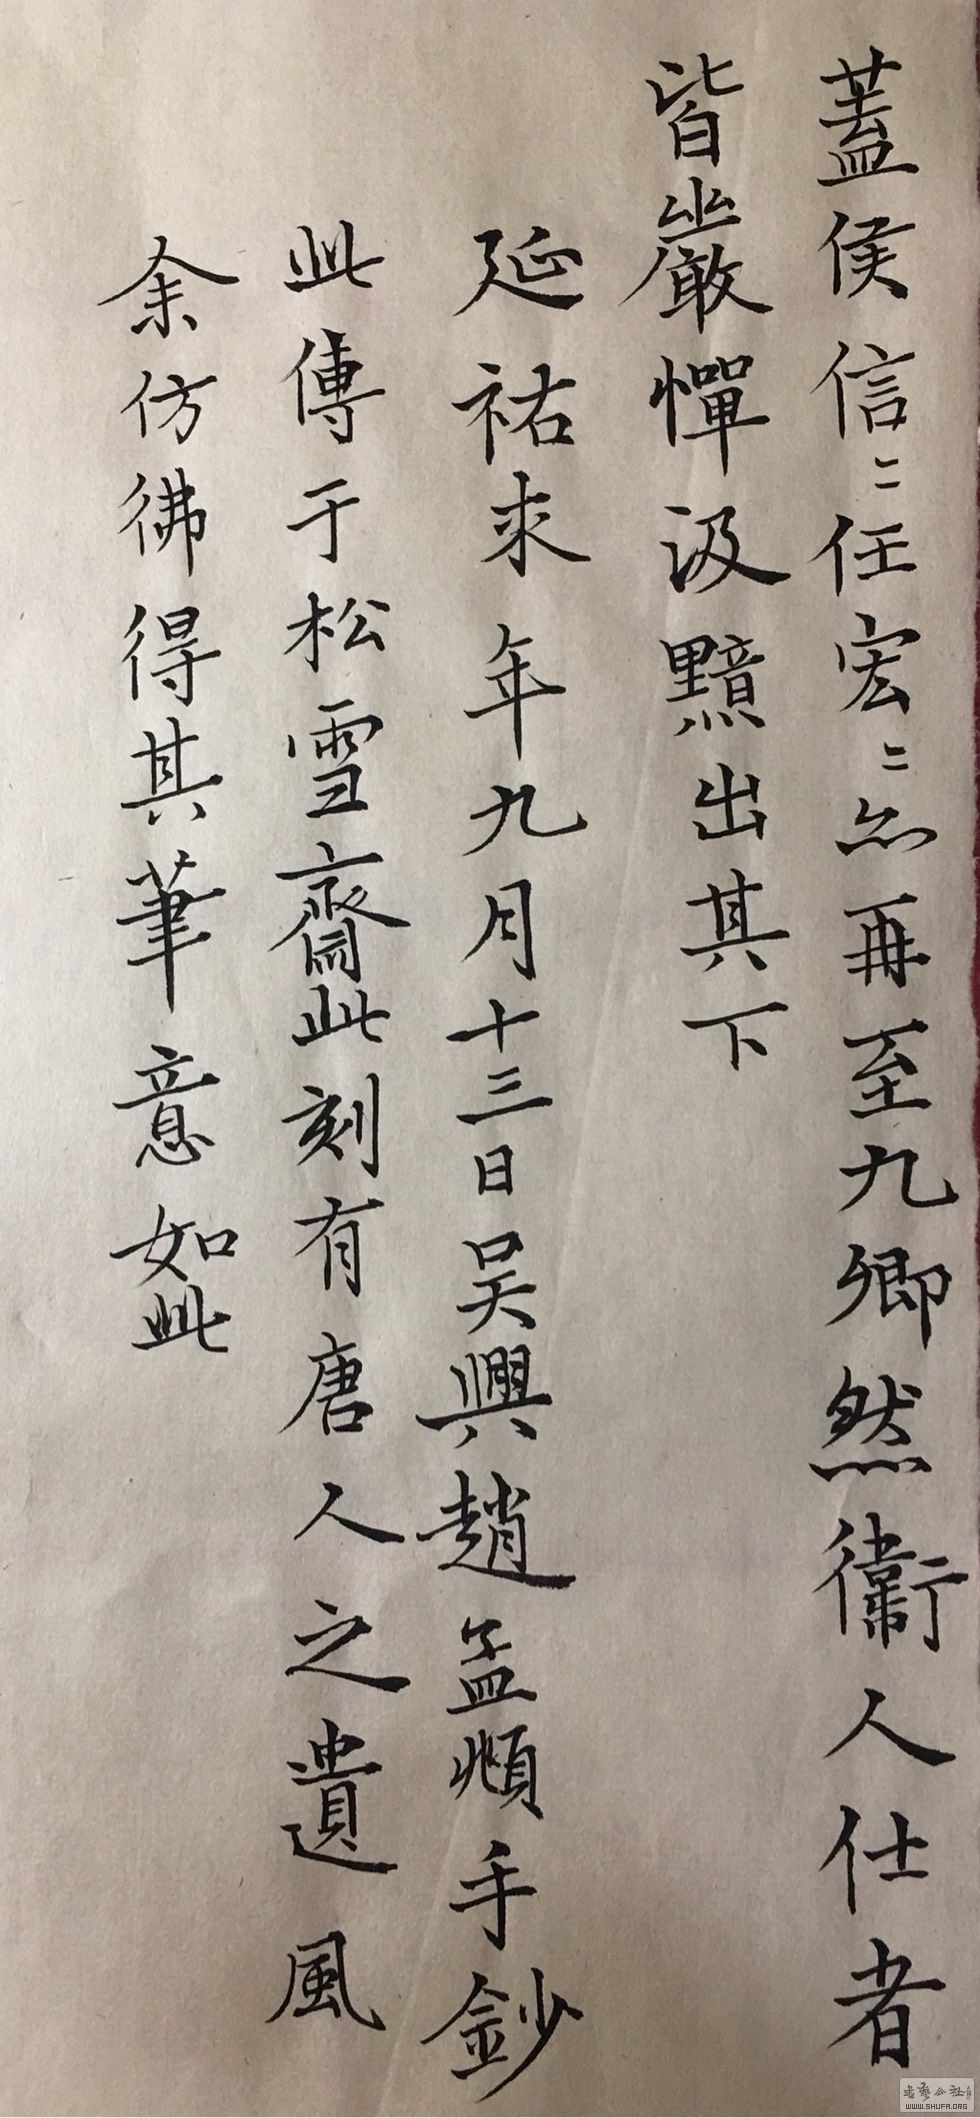 蓋侯信〻任宏〻亦再至九卿然衞人仕者
皆嚴憚汲黯出其下
延祐來年九月十三日吴興趙孟頫手鈔
此傳于松雪齋此刻有唐人之遺風
余仿彿得其筆意如此
書藝公社
WWW.SHUFA.ORG